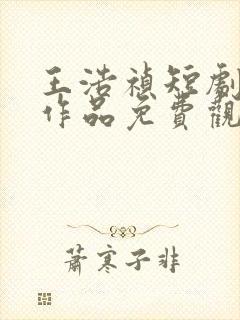 王浩禎短劇
作品免費觀
蕭寒子非